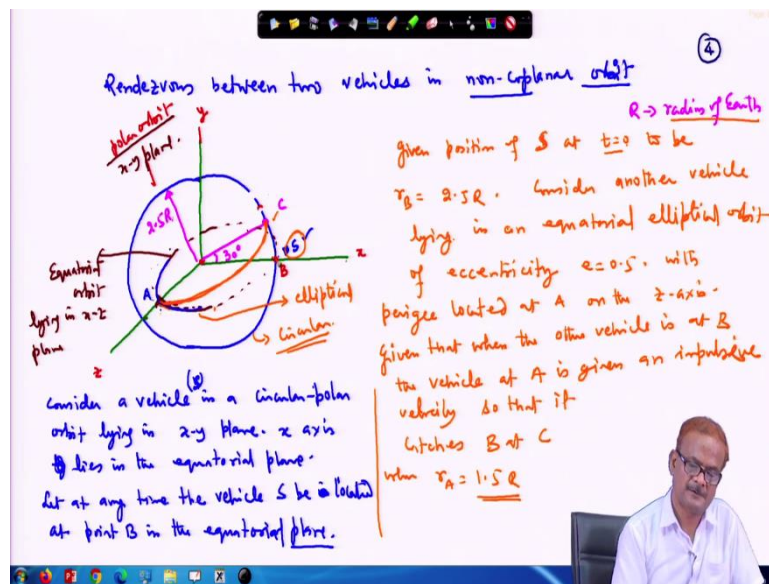 ④
Rendezvous between two vehicles in non-coplanar orbit
R → radius of Earth
polar orbit
x-y plane.
y
2.5R
C
30°
S
B
x
A
z
Equatorial
orbit
lying in x-z
plane
elliptical
circular
Consider a vehicle (S) in a circular-polar
orbit lying in x-y plane. x axis
lies in the equatorial plane.
Let at any time the vehicle S be located
at point B in the equatorial plane.
given position of S at t=0 to be
r_B = 2.5R. Consider another vehicle
lying in an equatorial elliptical orbit
of eccentricity e=0.5. with
perigee located at A on the z-axis.
Given that when the other vehicle is at B
the vehicle at A is given an impulsive
velocity so that it
catches B at C
when r_A = 1.5R